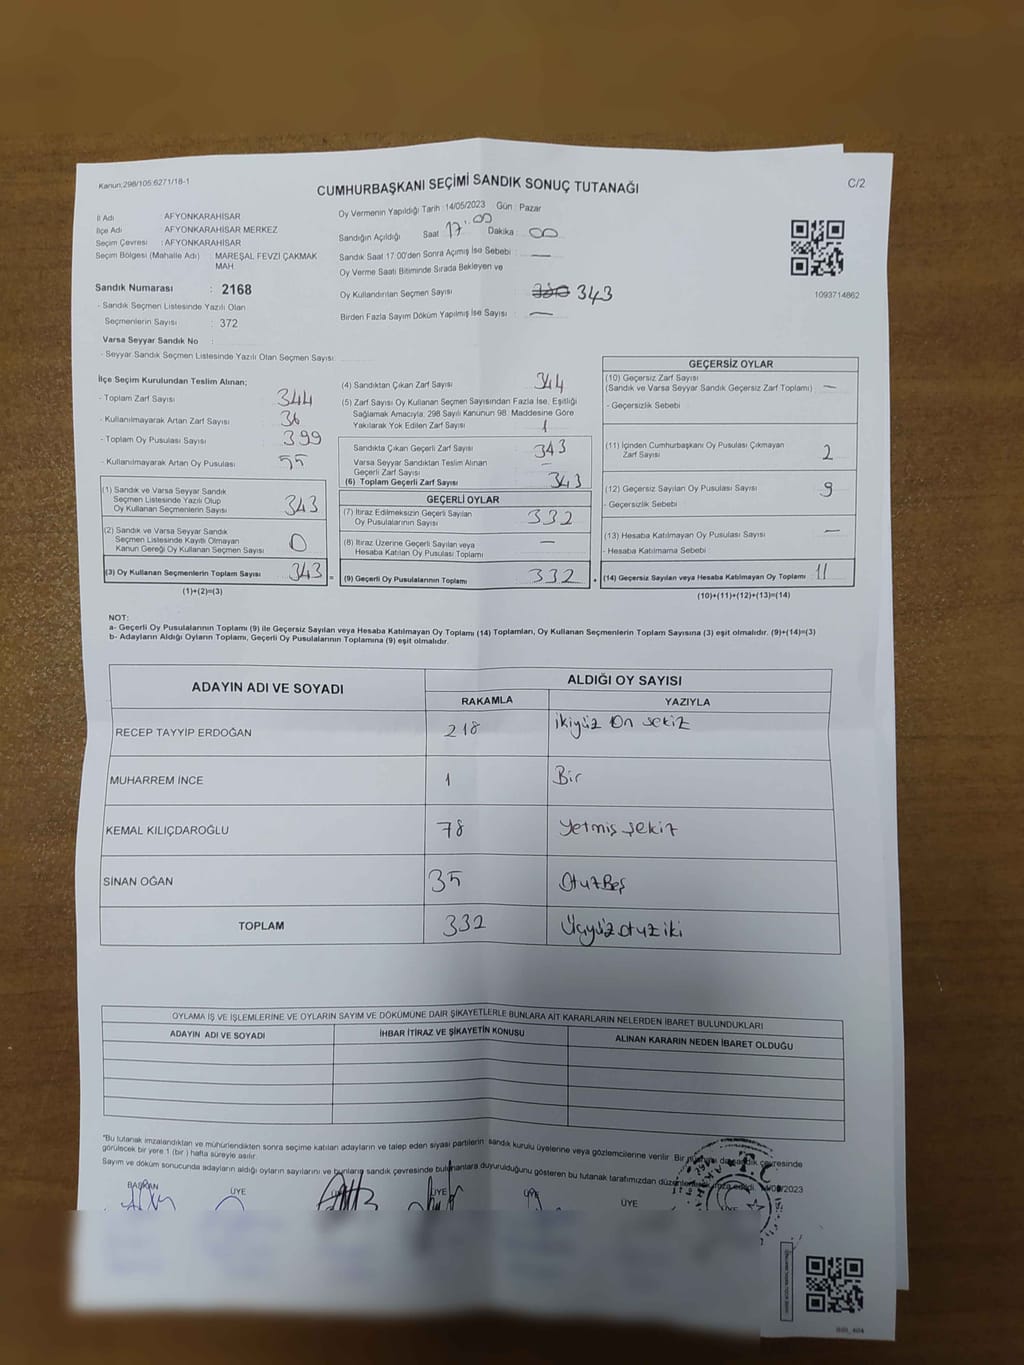 Kanun:298/105:6271/18-1
CUMHURBAŞKANI SEÇİMİ SANDIK SONUÇ TUTANAĞI
C/2
İl Adı AFYONKARAHİSAR
İlçe Adı AFYONKARAHİSAR MERKEZ
Seçim Çevresi : AFYONKARAHİSAR
Seçim Bölgesi (Mahalle Adı) MAREŞAL FEVZİ ÇAKMAK
MAH.
Sandık Numarası : 2168
- Sandık Seçmen Listesinde Yazılı Olan
Seçmenlerin Sayısı : 372
Varsa Seyyar Sandık No :
- Seyyar Sandık Seçmen Listesinde Yazılı Olan Seçmen Sayısı
Oy Vermenin Yapıldığı Tarih :14/05/2023 Gün : Pazar
Sandığın Açıldığı Saat 17:00 Dakika : 00
Sandık Saat 17:00'den Sonra Açımış İse Sebebi : —
Oy Verme Saati Bitiminde Sırada Bekleyen ve
Oy Kullandırılan Seçmen Sayısı : 343
Birden Fazla Sayım Döküm Yapılmış İse Sayısı : —
1093714862
İlçe Seçim Kurulundan Teslim Alınan;
- Toplam Zarf Sayısı 344
- Kullanılmayarak Artan Zarf Sayısı : 36
- Toplam Oy Pusulası Sayısı : 399
- Kullanılmayarak Artan Oy Pusulası 55
(1) Sandık ve Varsa Seyyar Sandık
Seçmen Listesinde Yazılı Olup
Oy Kullanan Seçmenlerin Sayısı 343
(2) Sandık ve Varsa Seyyar Sandık
Seçmen Listesinde Kayıtlı Olmayan
Kanun Gereği Oy Kullanan Seçmen Sayısı 0
(3) Oy Kullanan Seçmenlerin Toplam Sayısı 343 =
(1)+(2)=(3)
(4) Sandıktan Çıkan Zarf Sayısı 344
(5) Zarf Sayısı Oy Kullanan Seçmen Sayısından Fazla İse, Eşitliği
Sağlamak Amacıyla; 298 Sayılı Kanunun 98. Maddesine Göre
Yakılarak Yok Edilen Zarf Sayısı 1
Sandıkta Çıkan Geçerli Zarf Sayısı 343
Varsa Seyyar Sandıktan Teslim Alınan
Geçerli Zarf Sayısı —
(6) Toplam Geçerli Zarf Sayısı 343
GEÇERLİ OYLAR
(7) İtiraz Edilmeksizin Geçerli Sayılan
Oy Pusulalarının Sayısı 332
(8) İtiraz Üzerine Geçerli Sayılan veya
Hesaba Katılan Oy Pusulası Toplamı —
(9) Geçerli Oy Pusulalarının Toplamı 332 +
GEÇERSİZ OYLAR
(10) Geçersiz Zarf Sayısı
(Sandık ve Varsa Seyyar Sandık Geçersiz Zarf Toplamı) —
- Geçersizlik Sebebi
(11) İçinden Cumhurbaşkanı Oy Pusulası Çıkmayan
Zarf Sayısı 2
(12) Geçersiz Sayılan Oy Pusulası Sayısı 9
- Geçersizlik Sebebi
(13) Hesaba Katılmayan Oy Pusulası Sayısı —
- Hesaba Katılmama Sebebi
(14) Geçersiz Sayılan veya Hesaba Katılmayan Oy Toplamı 11
(10)+(11)+(12)+(13)=(14)
NOT:
a- Geçerli Oy Pusulalarının Toplamı (9) ile Geçersiz Sayılan veya Hesaba Katılmayan Oy Toplamı (14) Toplamları, Oy Kullanan Seçmenlerin Toplam Sayısına (3) eşit olmalıdır. (9)+(14)=(3)
b- Adayların Aldığı Oyların Toplamı, Geçerli Oy Pusulalarının Toplamına (9) eşit olmalıdır.
ADAYIN ADI VE SOYADI
ALDIĞI OY SAYISI
RAKAMLA YAZIYLA
RECEP TAYYİP ERDOĞAN 218 ikiyüz on sekiz
MUHARREM İNCE 1 Bir
KEMAL KILIÇDAROĞLU 78 Yetmiş şekiz
SİNAN OĞAN 35 OtuzBeş
TOPLAM 332 Üçyüz otuz iki
OYLAMA İŞ VE İŞLEMLERİNE VE OYLARIN SAYIM VE DÖKÜMÜNE DAİR ŞİKAYETLERLE BUNLARA AİT KARARLARIN NELERDEN İBARET BULUNDUKLARI
ADAYIN ADI VE SOYADI İHBAR İTİRAZ VE ŞİKAYETİN KONUSU ALINAN KARARIN NEDEN İBARET OLDUĞU
*Bu tutanak imzalandıktan ve mühürlendikten sonra seçime katılan adayların ve talep eden siyasi partilerin sandık kurulu üyelerine veya gözlemcilerine verilir. Bir da sandık çevresinde
görülecek bir yere 1 (bir) hafta süreyle asılır.
Sayım ve döküm sonucunda adayların aldığı oyların sayılarını ve bunların sandık çevresinde bulunanlara duyurulduğunu gösteren bu tutanak tarafımızdan imza edildi.
BAŞKAN ÜYE ÜYE ÜYE ÜYE
T.C